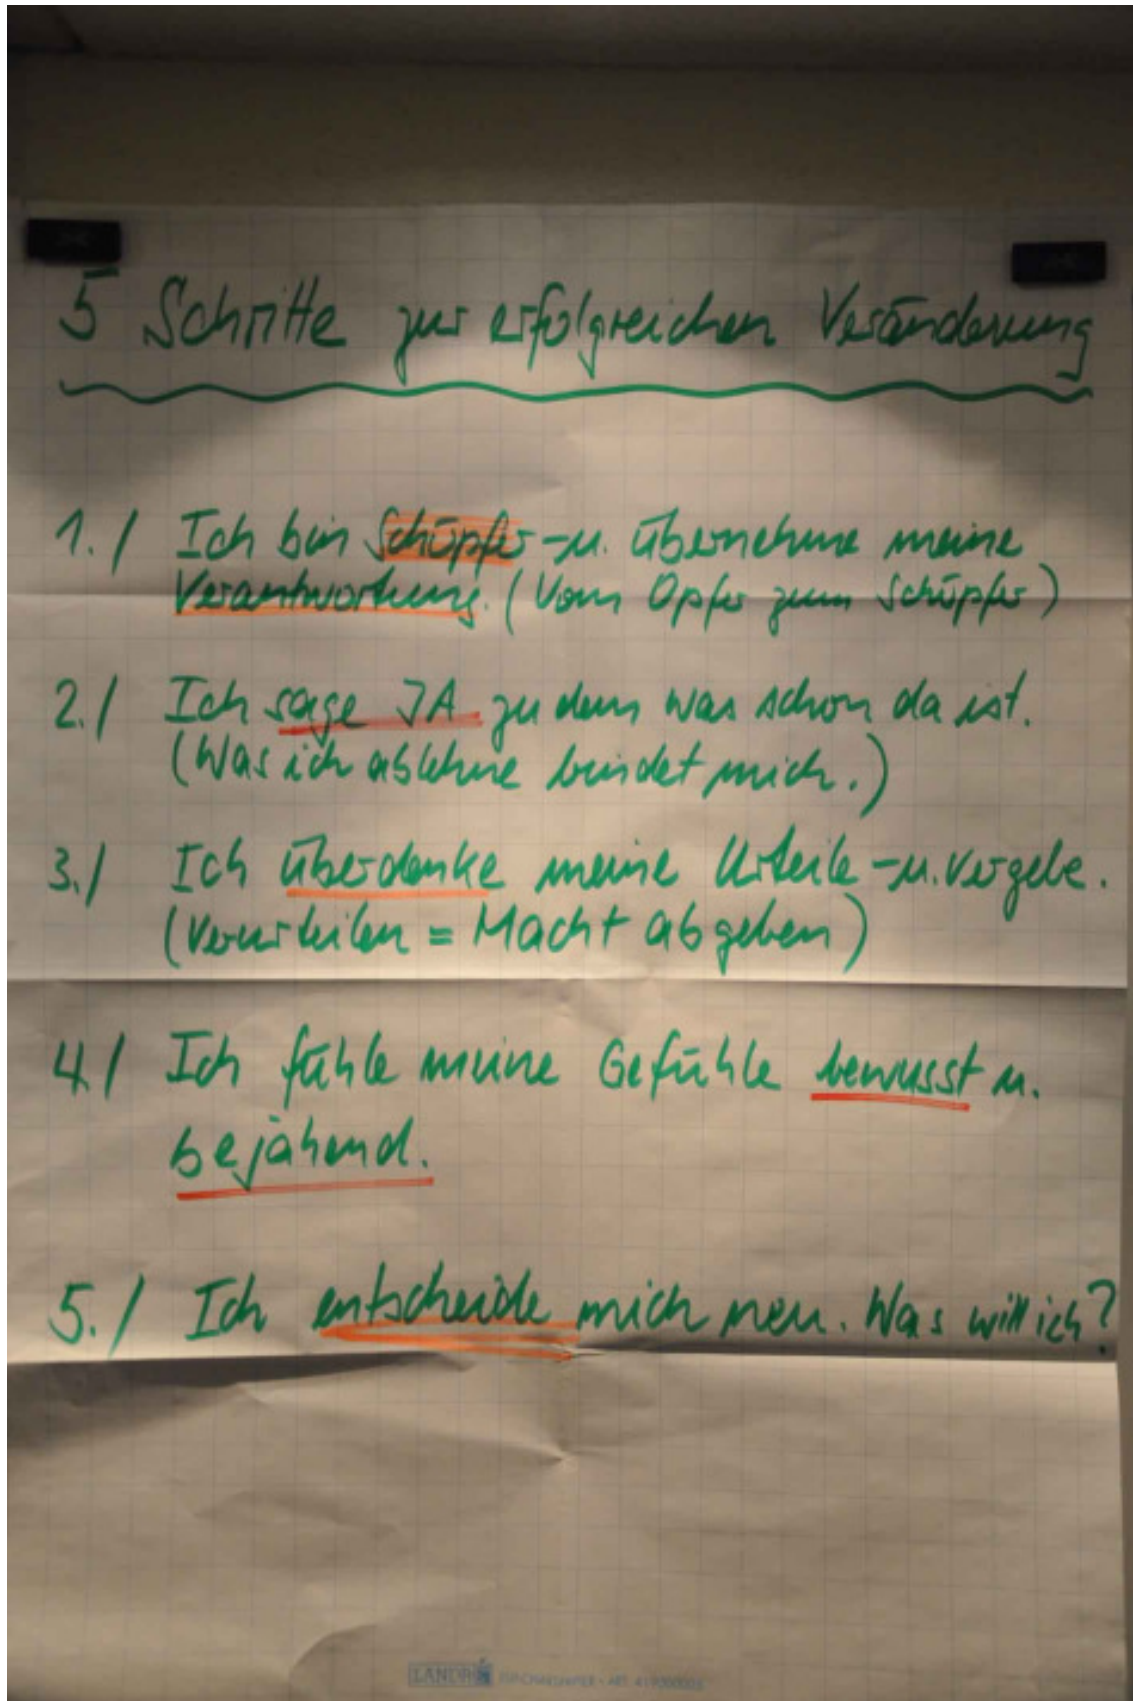 5 Schritte zur erfolgreichen Veränderung
1./ Ich bin Schöpfer -u. übernehme meine
Verantwortung. (Vom Opfer zum Schöpfer)
2./ Ich sage JA zu dem was schon da ist.
(Was ich ablehne bindet mich.)
3./ Ich überdenke meine Urteile -u. vergebe.
(Verurteilen = Macht abgeben)
4./ Ich fühle meine Gefühle bewusst u.
bejahend.
5./ Ich entscheide mich neu. Was will ich?
LANDRÉ